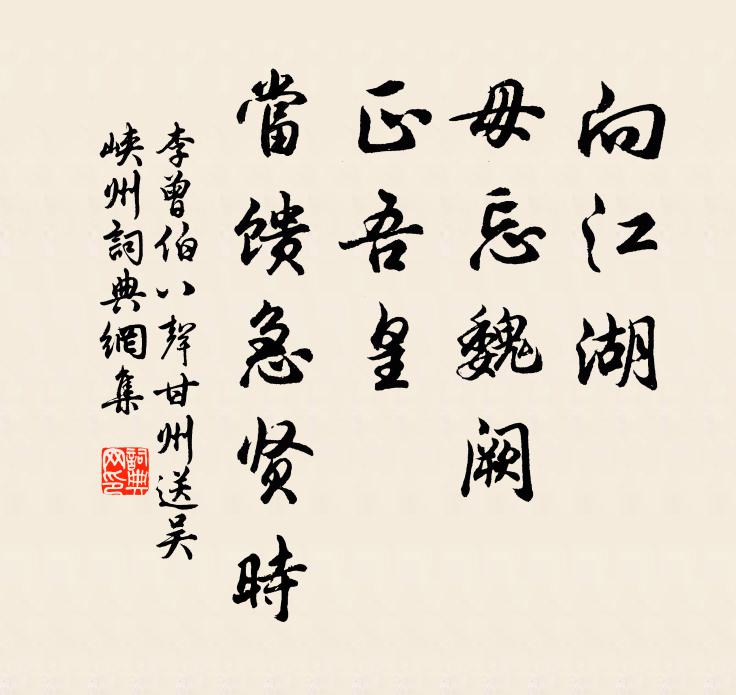 向江湖
毋忘魏阙
正吾皇
當馈急贤時
李曾伯八聲甘州送吴
峡州詞典網集
詞典网印